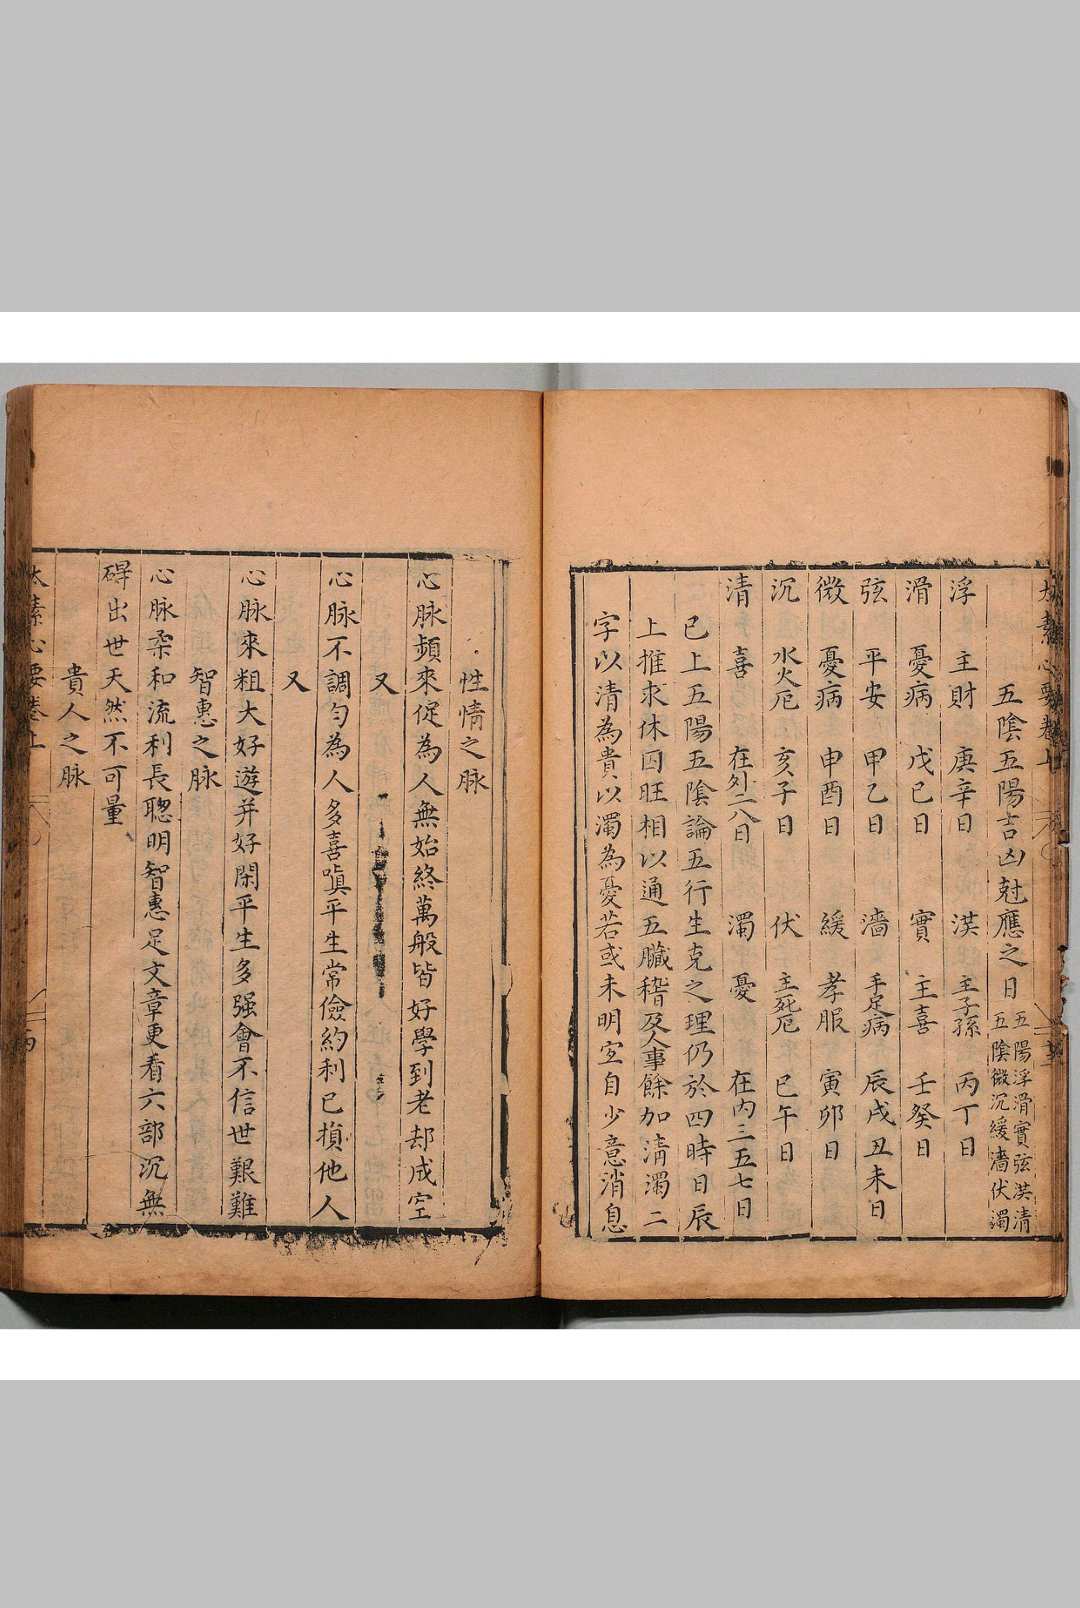 太素心要卷上
五陰五陽吉凶尅應之日 五陽浮滑實弦洪清 五陰微沉緩濇伏濁
浮 主財 庚辛日 洪 主子孫 丙丁日
滑 憂病 戊己日 實 主喜 壬癸日
弦 平安 甲乙日 濇 手足病 辰戌丑未日
微 憂病 申酉日 緩 孝服 寅卯日
沉 水火厄 亥子日 伏 主死厄 巳午日
清 喜 在外二八日 濁 憂 在内三五七日
已上五陽五陰論五行生克之理仍於四時日辰
上推求休囚旺相以通五臟稽及人事餘加清濁二
字以清為貴以濁為憂若或未明宜自少意消息
性情之脉
心脉頻來促為人無始終萬般皆好學到老却成空
又
心脉不調勻為人多喜嗔平生常儉約利已損他人
又
心脉來粗大好遊并好閑平生多强會不信世艱難
智惠之脉
心脉柔和流利長聰明智惠足文章更看六部沉無
碍出世天然不可量
貴人之脉
太素心要卷上